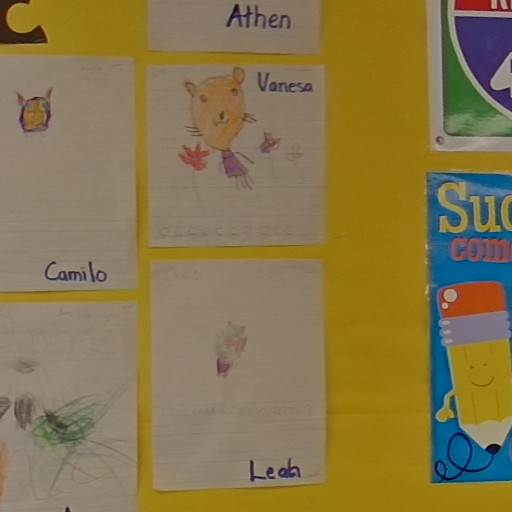 C
Athen
Vanesa
Camilo
Leah
Suc
com